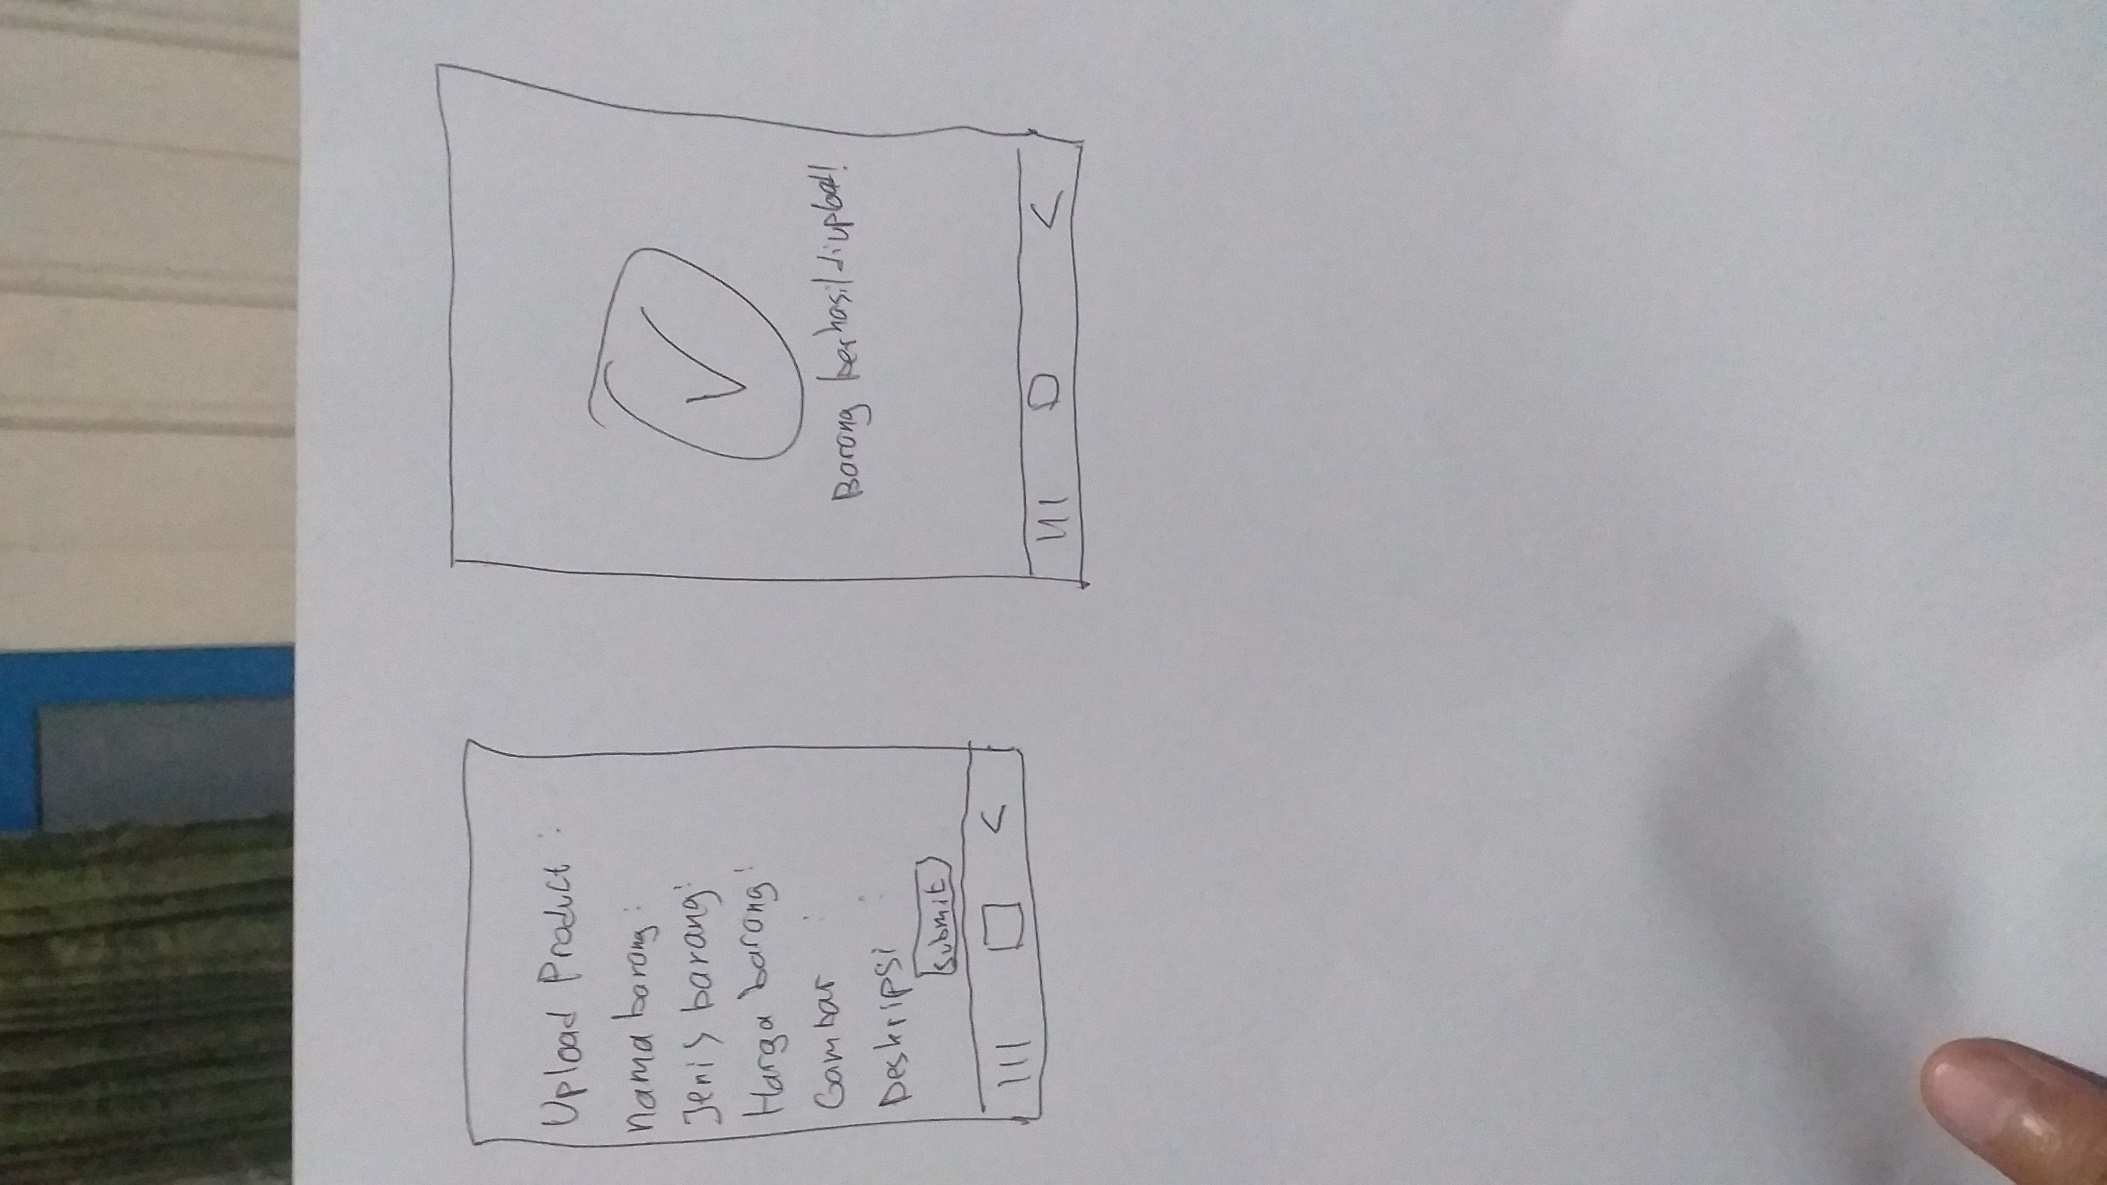 Upload Product :
nama barang :
Jenis barang :
Harga barang :
Gambar :
Deskripsi :
Submit
Barang berhasil diupload!